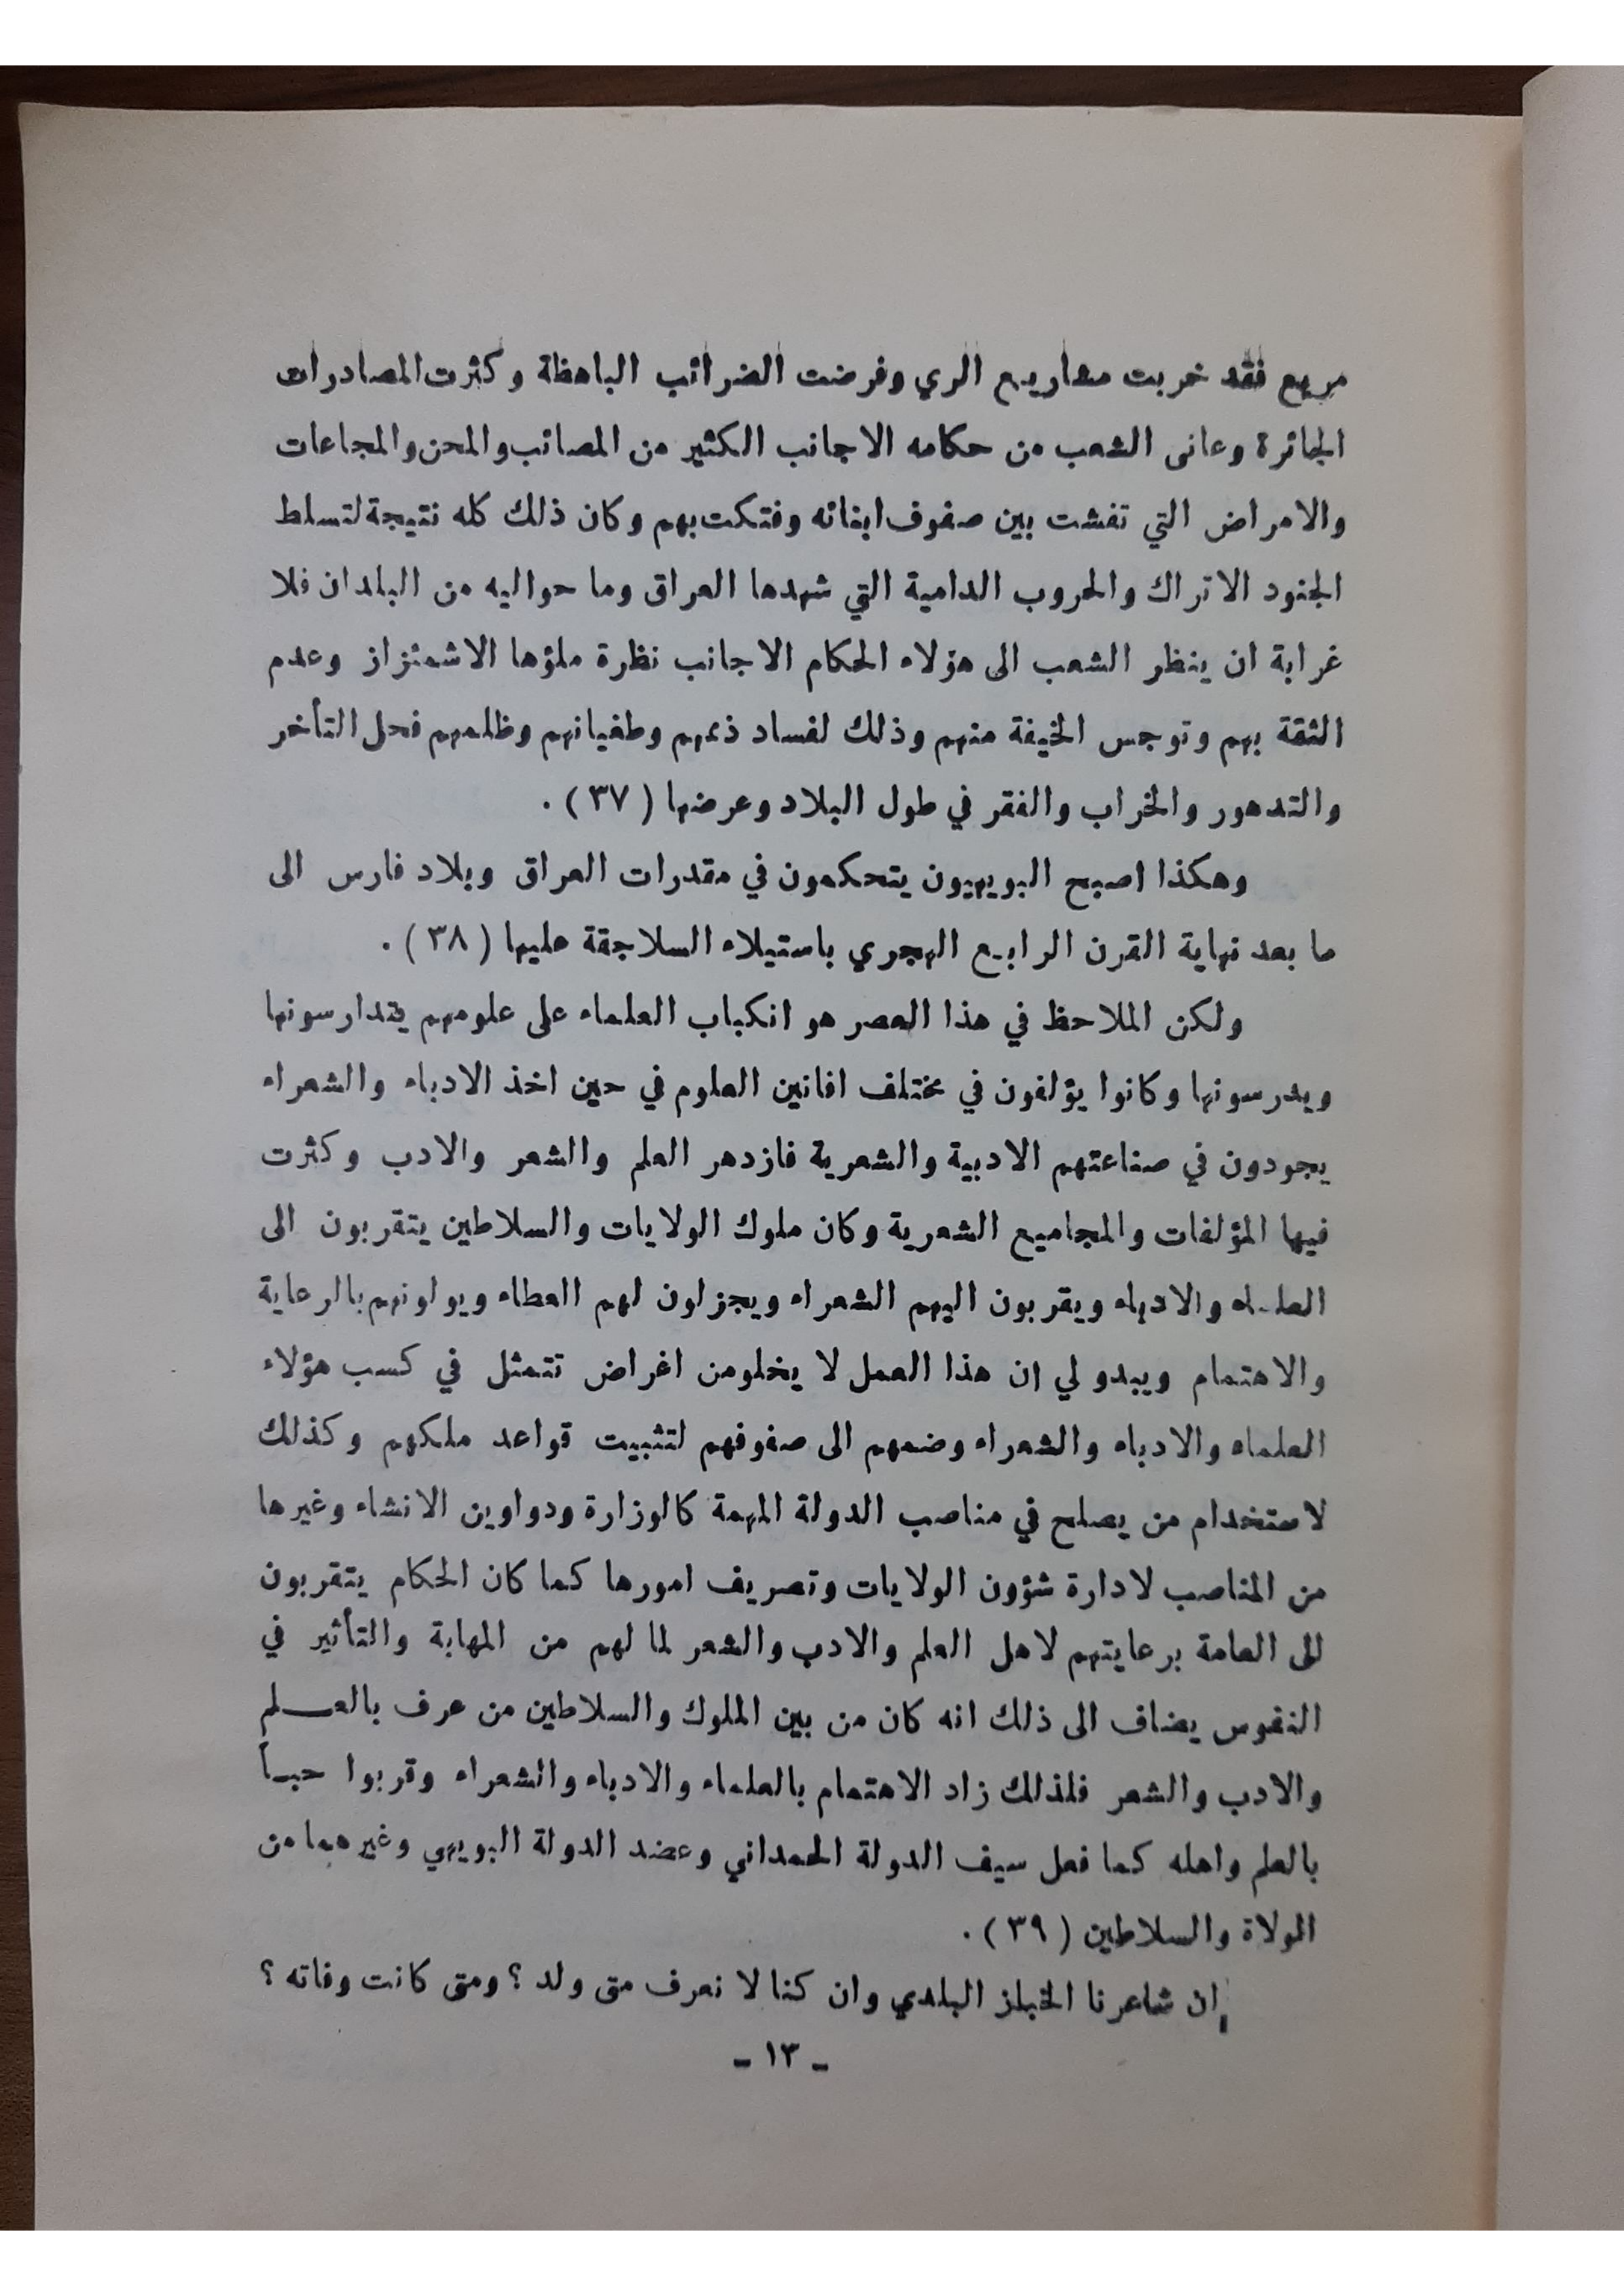 مريع فقد خربت مشاريع الري وفرضت الضرائب الباهظة وكثرت المصادرات
الجائرة وعانى الشعب من حكامه الاجانب الكثير من المصائب والمحن والمجاعات
والامراض التي تفشت بين صفوف ابنائه وفتكت بهم وكان ذلك كله نتيجة لتسلط
الجنود الاتراك والحروب الدامية التي شهدها العراق وما حواليه من البلدان فلا
غرابة ان ينظر الشعب الى هؤلاء الحكام الاجانب نظرة ملؤها الاشمئزاز وعدم
الثقة بهم وتوجس الخيفة منهم وذلك لفساد ذممهم وطغيانهم وظلمهم فحل التأخر
والتدهور والخراب والفقر في طول البلاد وعرضها ( ٣٧ ) .
وهكذا اصبح البويهيون يتحكمون في مقدرات العراق وبلاد فارس الى
ما بعد نهاية القرن الرابع الهجري باستيلاء السلاجقة عليها ( ٣٨ ) .
ولكن الملاحظ في هذا العصر هو انكباب العلماء على علومهم يتدارسونها
ويدرسونها وكانوا يؤلفون في مختلف افانين العلوم في حين اخذ الادباء والشعراء
يجودون في صناعتهم الادبية والشعرية فازدهر العلم والشعر والادب وكثرت
فيها المؤلفات والمجاميع الشعرية وكان ملوك الولايات والسلاطين يتقربون الى
العلماء والادباء ويقربون اليهم الشعراء ويجزلون لهم العطاء ويولونهم بالرعاية
والاهتمام ويبدو لي ان هذا العمل لا يخلو من اغراض تتمثل في كسب هؤلاء
العلماء والادباء والشعراء وضمهم الى صفوفهم لتثبيت قواعد ملكهم وكذلك
لاستخدام من يصلح في مناصب الدولة المهمة كالوزارة ودواوين الانشاء وغيرها
من المناصب لادارة شؤون الولايات وتصريف امورها كما كان الحكام يتقربون
الى العامة برعايتهم لاهل العلم والادب والشعر لما لهم من المهابة والتأثير في
النفوس يضاف الى ذلك انه كان من بين الملوك والسلاطين من عرف بالعـــلم
والادب والشعر فلذلك زاد الاهتمام بالعلماء والادباء والشعراء وقربوا حبـاً
بالعلم واهله كما فعل سيف الدولة الحمداني وعضد الدولة البويهي وغيرهما من
الولاة والسلاطين ( ٣٩ ) .
إن شاعرنا الخباز البلدي وان كنا لا نعرف متى ولد ؟ ومتى كانت وفاته ؟
- ١٣ -